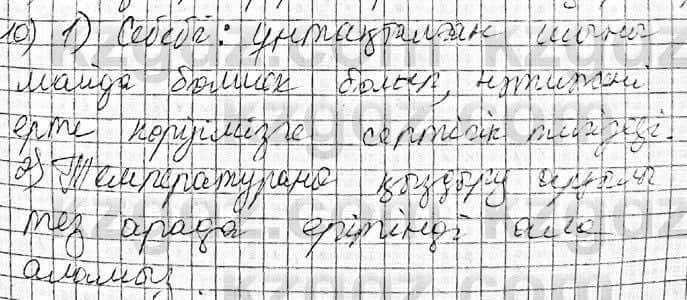 10) 1) Себебі: ұнтақталған шыны
майда бөлшек болып, нәтижені
ерте көруімізге септігін тигізеді.
2) Температурана қыздыру арқылы
тез арада ерітінді ала
аламыз.